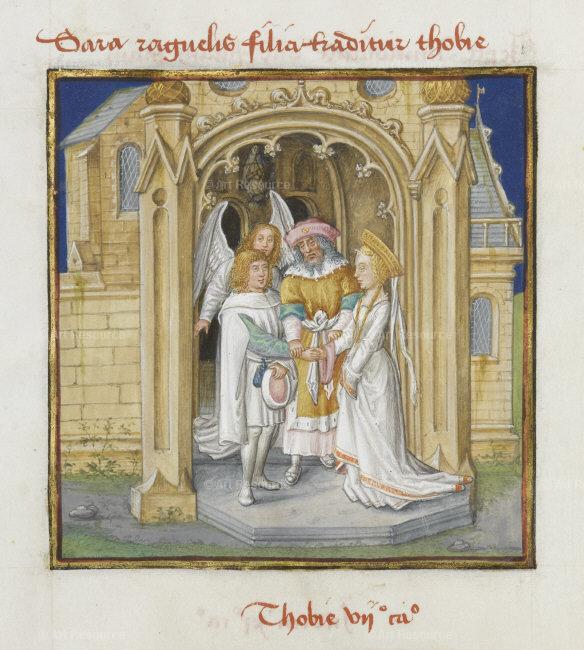 Sara raguelis filia traditur thobie
© Art Resource
© Art Resource
Thobie vijº caº